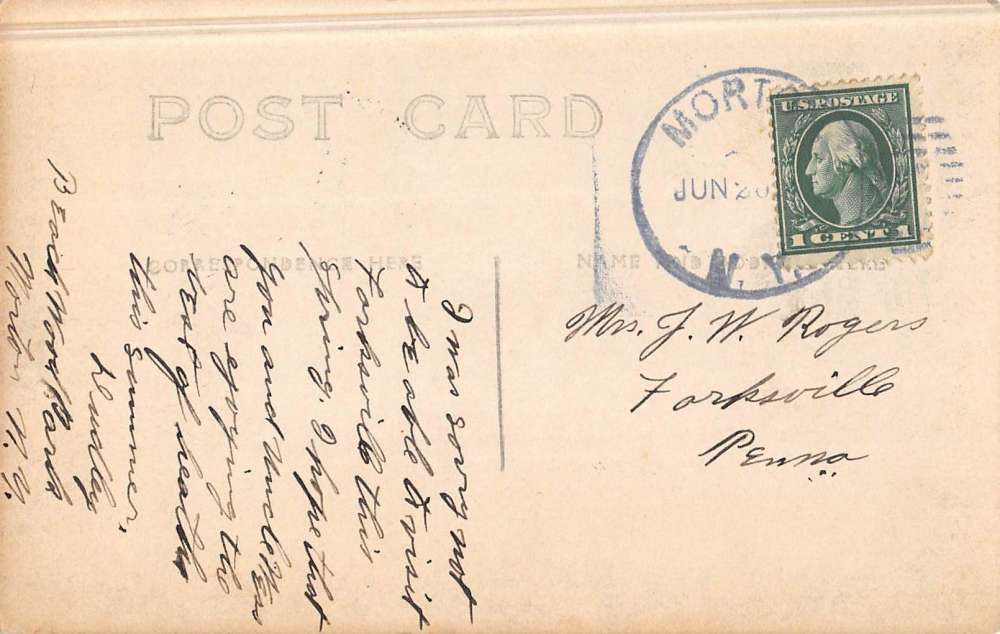 POST CARD
MORT
JUN 20
N.Y.
U.S. POSTAGE
1 CENT 1
CORRESPONDENCE HERE
NAME AND ADDRESS HERE
I was sorry not
to be able to visit
Forksville this
Spring. I hope that
you and Uncle
are ejoying the
best of health
this summer.
Dudley
Beachwood Park
Morton N.Y.
Mrs. J. W. Rogers
Forksville
Penna